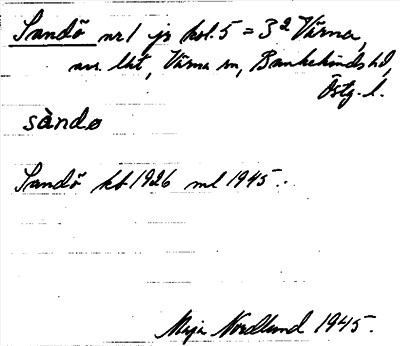 Sandö nr 1 jr kol. 5 = 3 d Värna,
av. lht, Värna sn, Bankekinds hd,
Östg. l.
sàndø
Sandö kb 1926 ml 1945.
Maja Nordlund 1945.